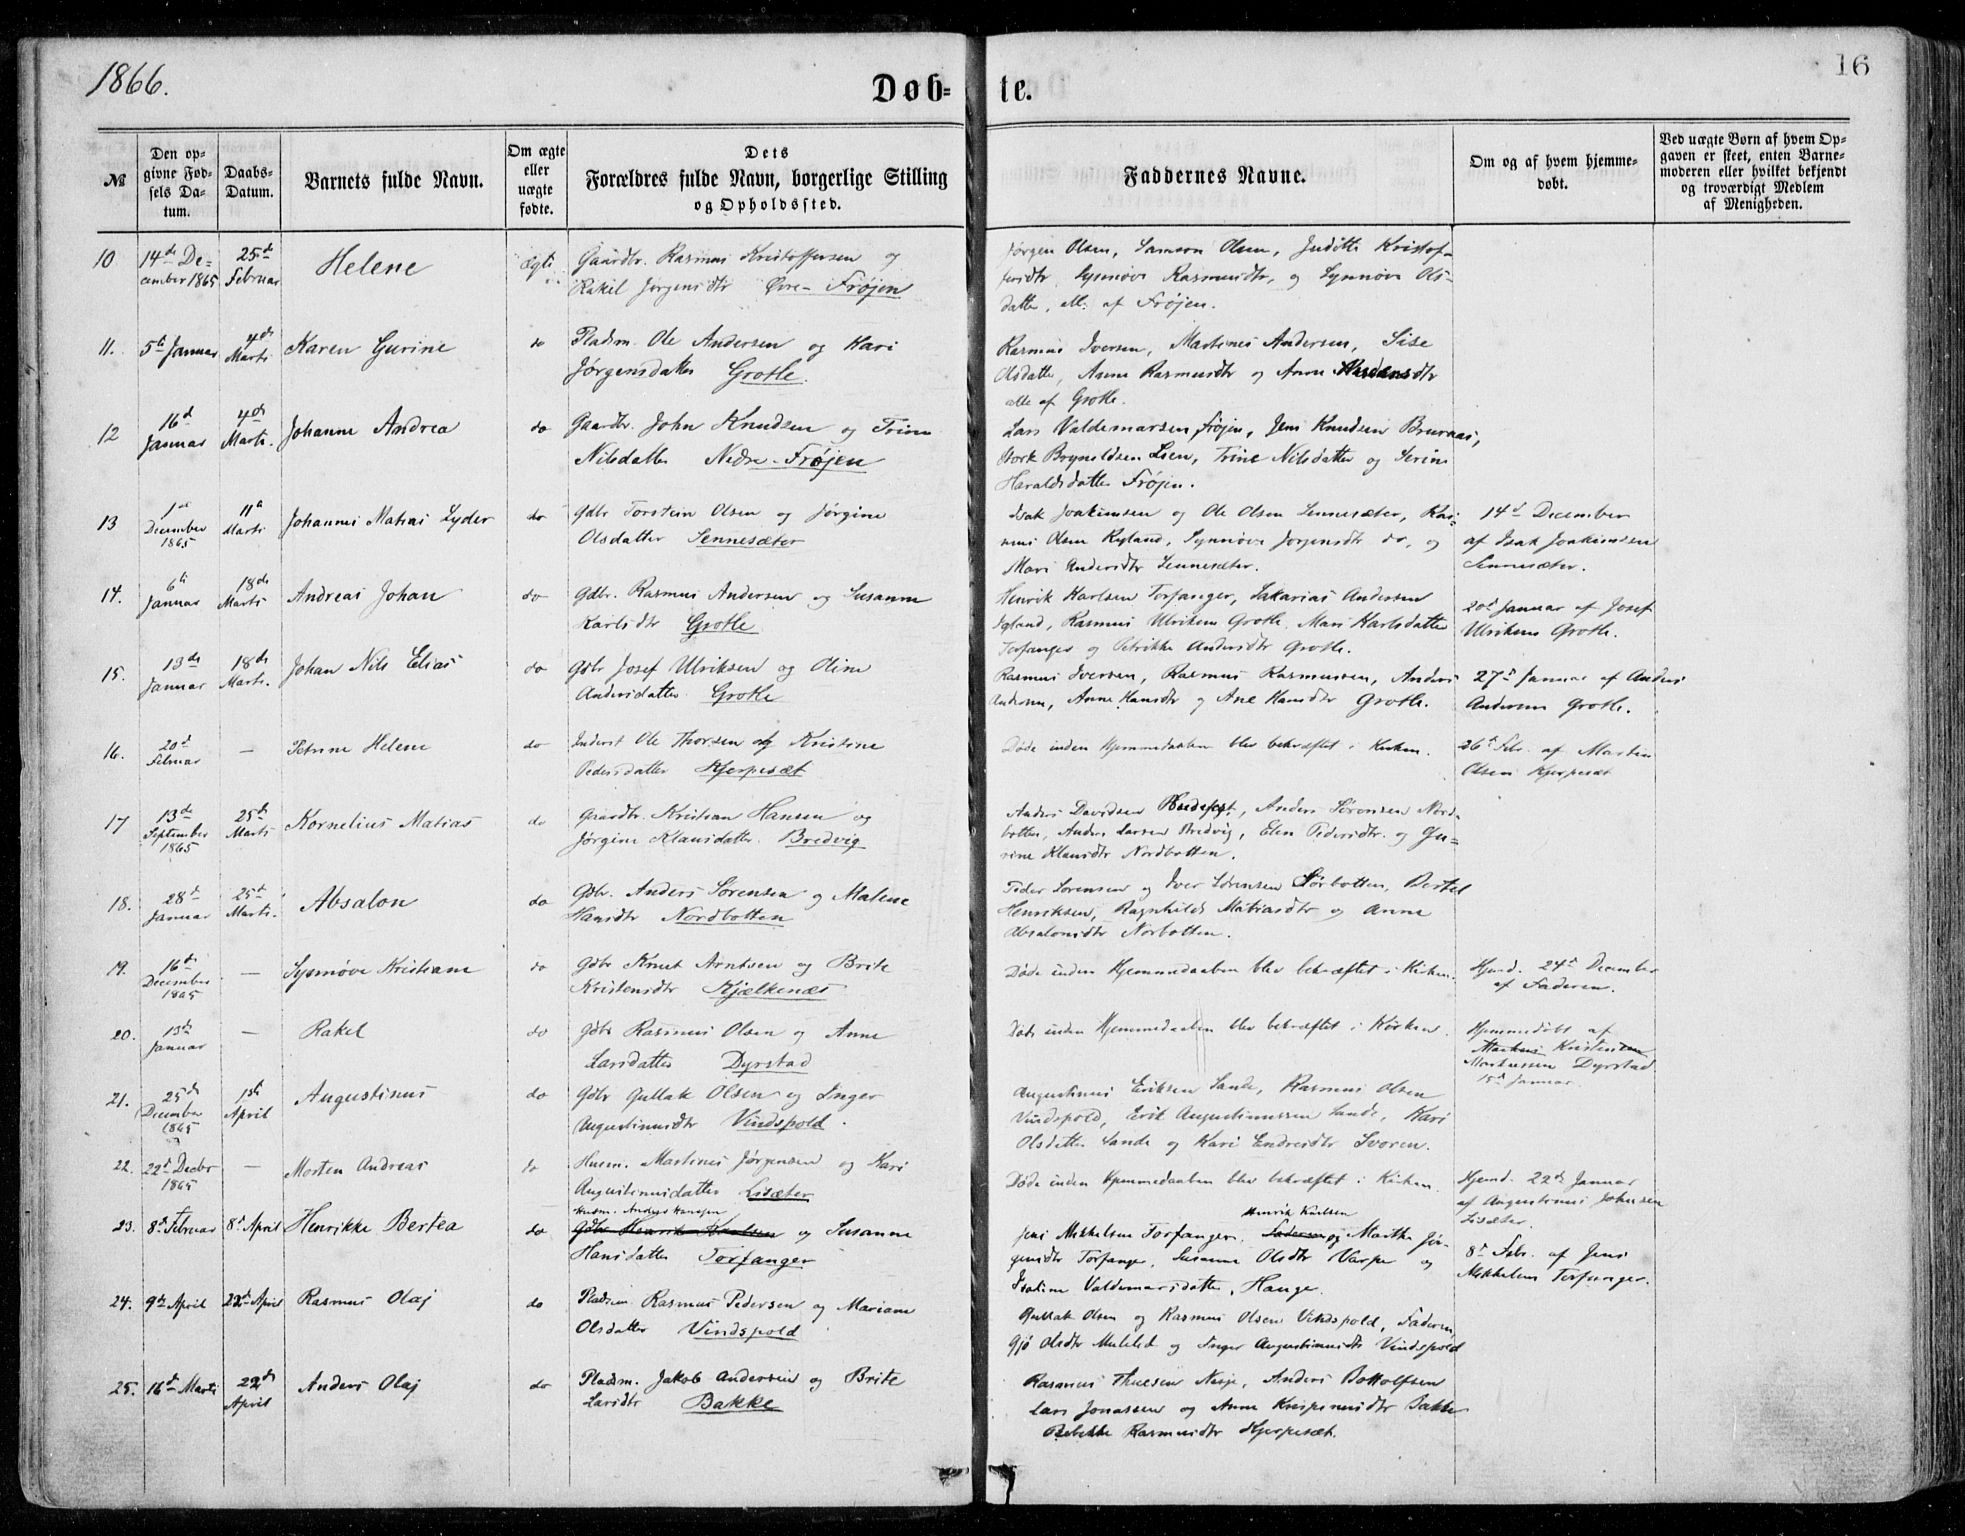 1866.
Døb=
te.
16
№
Den op-
givne Fød-
sels Da-
tum.
Daabs-
Datum.
Barnets fulde Navn.
Om ægte
eller
uægte
fødte.
Dets
Forældres fulde Navn, borgerlige Stilling
og Opholdssted.
Faddernes Navne.
Om og af hvem hjemme-
døbt.
Ved uægte Børn af hvem Op-
gaven er skeet, enten Barne-
moderen eller hvilket bekjendt
og troværdigt Medlem
af Menigheden.
10 14de De- 25de Helene Ægte Gaardbr. Rasmus Kristoffersen og Jørgen Olsen, Samson Olsen, Judithe Kristof-
cember 1865 Februar Rakel Jørgensdtr Øvre-Frøjen fersdtr, Synnøve Rasmusdtr, og Synnøve Ols-
datter, all: af Frøjen.
11. 5te Januar 4de Marts Karen Gurine do Pladsm. Ole Andersen og Kari Rasmus Iversen, Martines Andersen, Sise
Jørgensdatter Grotle. Olsdatter, Anne Rasmusdtr og Anne
alle af Grotle.
12 16d Januar 4de Marts. Johanne Andrea do Gaardbr. John Knudsen og Trine Lars Valdemarsen Frøjen, Jens Knudsen Brurnæs,
Nilsdatter Nedre-Frøjen Brynildsen Lien, Trine Nilsdatter og Serine
Haraldsdatter Frøjen.
13 1ste December 1865 11te Marts Johannes Matias Lyder do Gdbr Torstein Olsen og Jørgine Isak Joakimsen og Ole Olsen Sennesæter, Ras- 14d December
Olsdatter Sennesæter mus Olsen Ryland, Synnøve Jørgensdtr do, og af Isak Joakimsen
Mari Andersdtr Sennesæter. Sennesæter.
14. 6te Januar 18de Marts Andreas Johan do Gdbr. Rasmus Andersen og Susanne Henrik Karlsen Torfanger, Sakarias Andersen 20d Januar af Josef
Karlsdtr Grotle Rasmus Ulriksen Grotle, Mari Karlsdatter Ulriksen Grotle.
Torfanger og Petrikke Andersdtr Grotle.
15. 13de Januar 18de Marts. Johan Nils Elias do Gdbr Josef Ulriksen og Oline Rasmus Iversen, Rasmus Rasmussen, Anders 27d Januar af Anders
Andersdatter Grotle Andersen, Anne Hansdtr og Ane Hansdtr Grotle. Andersen Grotle.
16. 20d Februar — Petrine Helene do Inderst Ole Thorsen og Kristine Døde inden Hjemmedaaben blev bekræftet i Kirken. 26d Febr. af Martin
Pedersdatter Kjerpesæt Olsen Kjerpesæt
17 13de September 1865 25de Marts Kornelius Matias do Gaardbr. Kristian Hansen og Anders Davidsen Anders Sørensen Nord-
Jørgine Klausdatter. Bredvig botten, Anders Larsen Bredvig, Elen Pedersdtr. og Gu-
rine Klausdtr Nordbotten.
18. 28d Januar 25d Marts. Absalon do Gdbr. Anders Sørensen og Malene Peder Sørensen og Iver Sørensen Sørbotten, Bertel
Hansdtr Nordbotten Henriksen, Ragnhilds Matiasdtr og Anne
Absalonsdtr Norbotten.
19. 16de December 1865 — Synnøve Kristiane do Gdbr Knut Arntsen og Brite Døde inden Hjemmedaaben blev bekræftet i Kirken. Hjemd. 24d December
Kristensdtr Hjelkenæs af Faderen.
20. 13de Januar — Rakel do Gdbr Rasmus Olsen og Anne Døde inden Hjemmedaaben blev bekræftet i Kirken. Hjemmedøbt af
Larsdatter Dyrstad Markus Kristensen
Markussen Dyrstad
15d Januar.
21. 25de December 1865 1ste April Augustinus do Gdbr Gullak Olsen og Inger Augustinus Eriksen Sande, Rasmus Olsen
Augustinusdtr Vindspold. Vindspold, Erik Augustinussen Sande, Kari
Olsdatter Sande og Kari Endresdtr Svoren.
22. 22d Decbr 1865 — Morten Andreas do Husm. Martines Jørgensen og Kari Døde inden Hjemmedaaben blev bekræftet i Kirken. Hjemd. 22de Januar
Augustinusdatter Lisæter af Augustinus Johnsen
Lisæter.
Husm. Anders Hansen Henrik Karlsen
23. 8d Februar 8d April Henrikke Bertea do Gdbr Henrik Karlsen og Susanne Jens Mikkelsen Torfanger, Faderen og Marthe Jør- 8d Febr. af Jens
Hansdatter Torfanger gensdtr Torfanger, Susanne Olsdtr Varpe og Mikkelsen Torfanger.
Valdemarsdatter, Hauge.
24. 9de April 22d April Rasmus Olaj do Pladsm. Rasmus Pedersen og Mariane Gullak Olsen og Rasmus Olsen Vindspold, Faderen,
Olsdatter Vindspold Gjø Olsdtr og Inger Augustinusdtr Vindspold
25. 16d Marts 22de April Anders Olaj do Pladsm. Jakob Andersen og Brite Rasmus Thuesen Nesje, Anders Bottolfsen
Larsdtr Bakke Lars Jonassen og Anne Krispinusdtr Bakke
Rebekke Rasmusdtr Kjerpesæt.